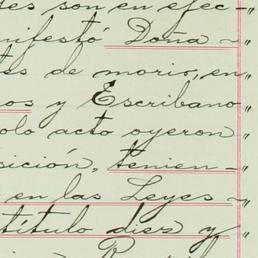 des son en efec-"
anifestó Doña ~"
tes de morir, en"
os y Escribano"
olo acto oyeron"
sición, tenien-"
en las Leyes ~"
título diez y"